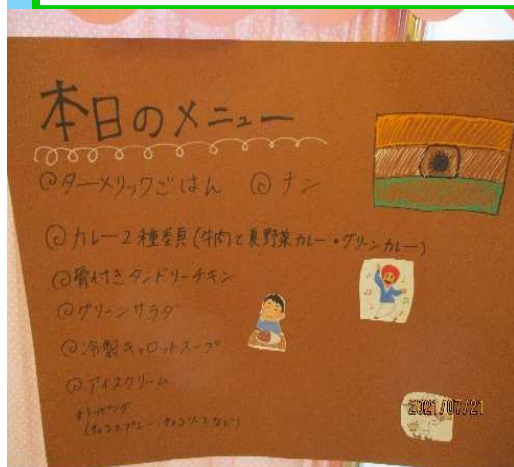 本日のメニュー
◎ターメリックごはん ◎ナン
◎カレー2種類(牛肉と夏野菜カレー・グリーンカレー)
◎骨付きタンドリーチキン
◎グリーンサラダ
◎冷製キャロットスープ
◎アイスクリーム
トッピング
(チョコスプレー・チョコソースなど)
2021/07/21